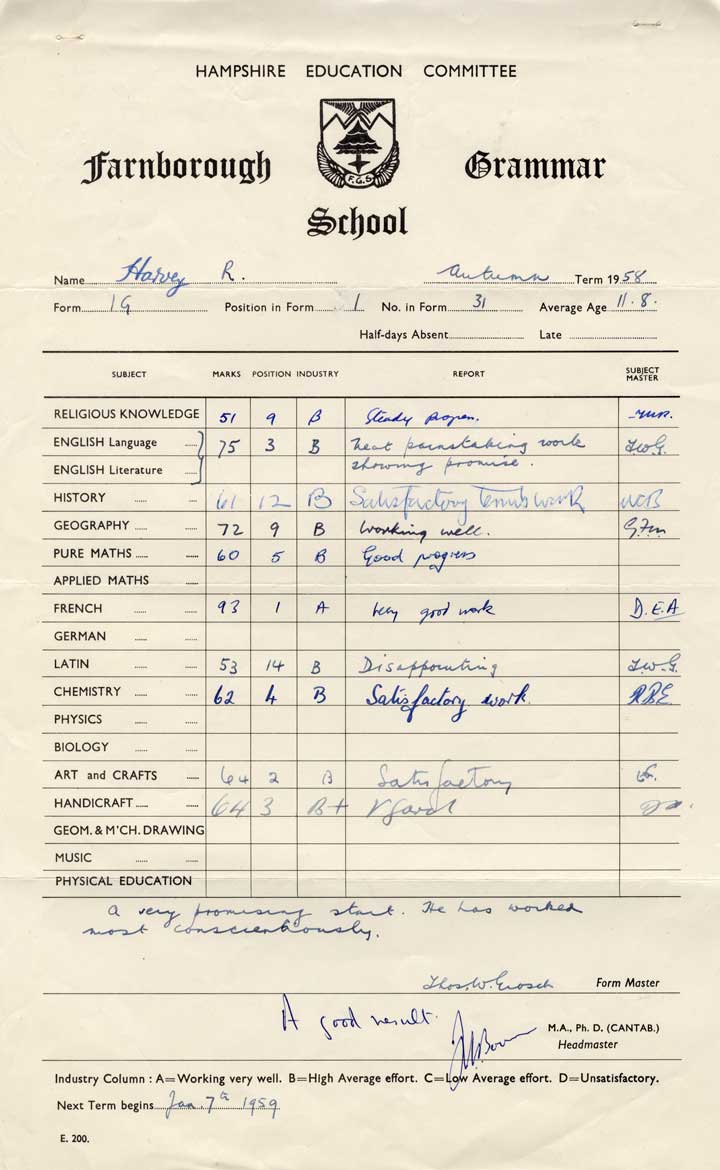 HAMPSHIRE EDUCATION COMMITTEE
Farnborough Grammar
F.G.S
School
Name Harvey R. Autumn Term 1958
Form 1G Position in Form 1 No. in Form 31 Average Age 11.8.
Half-days Absent Late
SUBJECT MARKS POSITION INDUSTRY REPORT SUBJECT MASTER
RELIGIOUS KNOWLEDGE 51 9 B Steady progress.
ENGLISH Language 75 3 B Neat painstaking work T.W.G.
ENGLISH Literature showing promise.
HISTORY 61 12 B Satisfactory Term's work WCB
GEOGRAPHY 72 9 B Working well.
PURE MATHS 60 5 B Good progress
APPLIED MATHS
FRENCH 93 1 A Very good work D.E.A
GERMAN
LATIN 53 14 B Disappointing T.W.G.
CHEMISTRY 62 4 B Satisfactory work. RBE.
PHYSICS
BIOLOGY
ART and CRAFTS 64 2 B Satisfactory
HANDICRAFT 64 3 B+ V. good
GEOM. & M'CH. DRAWING
MUSIC
PHYSICAL EDUCATION
A very promising start. He has worked
most conscientiously.
Thos. W. Form Master
A good result. M.A., Ph. D. (CANTAB.)
Headmaster
Industry Column : A=Working very well. B=High Average effort. C=Low Average effort. D=Unsatisfactory.
Next Term begins Jan. 7th 1959
E. 200.